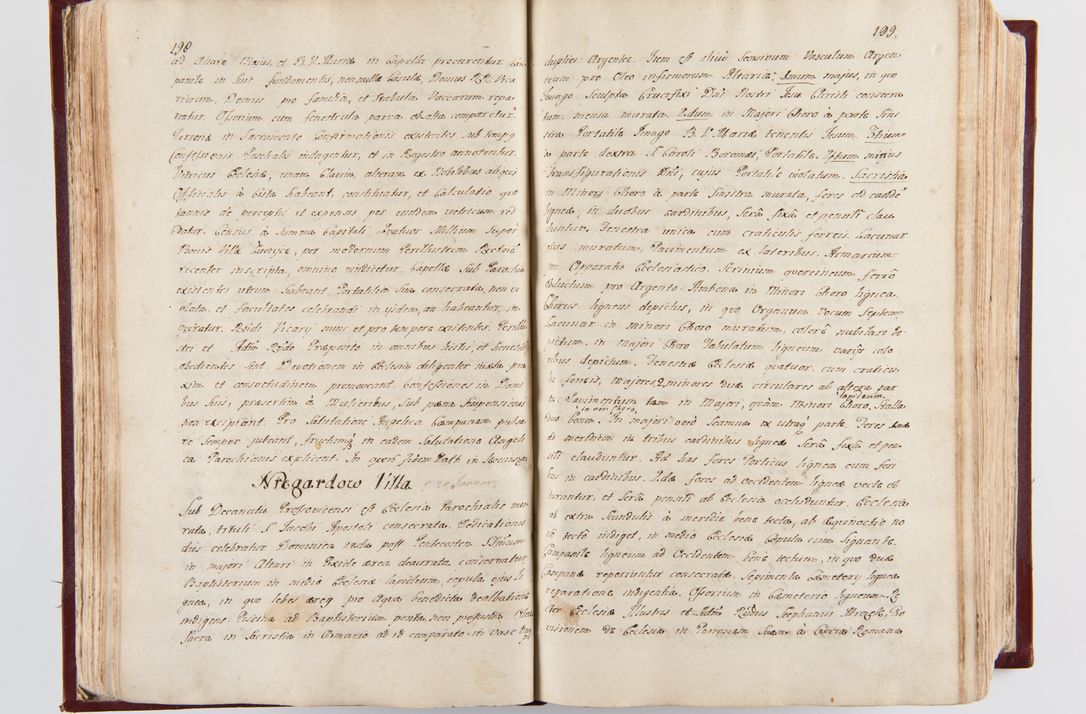 198
ad Altare Maius, et B. V. Mariæ in Capella procurentur.
panile in suis fundamentis, nonnulla tecula, Domus RR. Vica
riorum, Domus pro familia, et stabula Vaccarum repa
rentur. Ossorium cum fenestrula parva obalta comparetur.
Persona in Sacramento Confirmationis existentes sub tempus
Confessionis Paschalis indagentur, et in Registro annotentur.
Vitricus Ecclesiæ, unam Clavim, alteram ex Nobilibus aliquis
Officialis à Cista habeant, constituatur, et Calculatio quo
tannis de perceptis et expensis per eundem vitricum red
datur. Census à Summa Capitali Quatuor Millium super
Bonis Villæ per modernum Perillustrem Rectorem
recenter inscripta, omnino vindicetur. Capellæ sub Parochia
existentes utrum habeant Portatilia sua consecrata, non vi
olata, et facultates celebrandi in ijsdem, an habeantur, in
quiratur. Rndi Vicarij nunc et pro tempore existentes, Perillu
stri et Adm. Rndo Præposito in omnibus licitis, et honestis
obedientes sint. Devotionem in Ecclesia diligenter iuxta pra
xim et consuetudinem promoveant. Confessiones in Domi
bus suis, præsertim à Mulieribus, sub pœna suspensionis
non recipiant. Pro Salutatione Angelica Campanam pulsa
re semper jubeant, fructumq in eadem Salutatione Angeli
ca Parochianis explicent. In quoru fidem Datt. in
Niegardow Villa
Sub Decanatu Proszovicensi est Ecclesia Parochialis mu
rata, tituli S. Jacobi Apostoli consecrata. Dedicationis
dies celebratur Dominica post Pentecosten.
in majori Altari in Pixide ærea deaurata conservatur
Baptisterium in medio Ecclesiæ lapideum, copula ejus li
gnea, in quo lebes æreq pro aqua benedicta dealbatione
indigens. Piscina ad Baptisterium penitus non profunda. Olea
Sacra in Sacristia in Armario ad id comparato in vase

199.
duplici Argenteo. Item est aliud seorsivum Vasculum Argen
teum pro Oleo infirmorum. Altaria; Imum majus, in quo
Imago Sculpta Crucifixi Dni Nostri Jesu Christi consecra
tum, mensa murata. 2dum in Majori Choro à parte Sini
stra Portatile Imago B. V. Mariæ tenentis Jesum. 3tium
à parte dextra S. Caroli Boromæi, Portatile. 4tum minus
Transfigurationis Dni, cujus Portatile violatum. Sacristia
in Minori Choro à parte Sinistra murata, fores ad eandem
ligneæ, in duobus cardinibus, serâ fixâ et pensili clau
duntur. Fenestra unica cum craticulis ferreis. Lacunar
ejus muratum. Pavimentum ex lateribus. Armarium
pro Apparatu Ecclesiastico. Scrinium quercineum ferro
obductum pro Argento. Ambona in Minori Choro lignea
Chorus ligneus depictus, in quo Organum Vocum Septem
Lacunar in minori Choro muratum, colore nubilari de
pictum, in majori Choro Tabulatum ligneum varijs colo
ribus depictum. Fenestræ Ecclesiæ quatuor, cum craticu
lis ferreis, majores, minores duæ circulares ab altera par
te. Pavimentum tam in Majori, quàm Minori Choro, lapideum, Stalla
duo bona in minori Choro. In majori verò Scamna ex utraq parte. Fores
ad meridiem in tribus cardinibus lignea Serâ fixâ et pen
sili clauduntur. Ad has fores Porticus lignea cum fori
bus in cardinibus. Aliæ fores ad Occidentem ligneæ vecte ob
turantur, et serâ pensili ab Ecclesia occluduntur. Ecclesia
ab extra Scandulis à meridie benè tecta, ab Æquinoctio no
vo tecto indiget, in medio Ecclesiæ Copula cum Signante.
Campanile ligneum ad Occidentem benè tectum, in quo duæ
Campanæ reperiuntur consecratæ. Sepimenta Cæmeterij lignea
reparatione indigentia. Ossorium in Cæmeterio ligneum. Re
ctor Ecclesiæ Illustris et Adm. Rndus Stephanus Pro
visionem de Ecclesia in Personam suam à Curia Romana